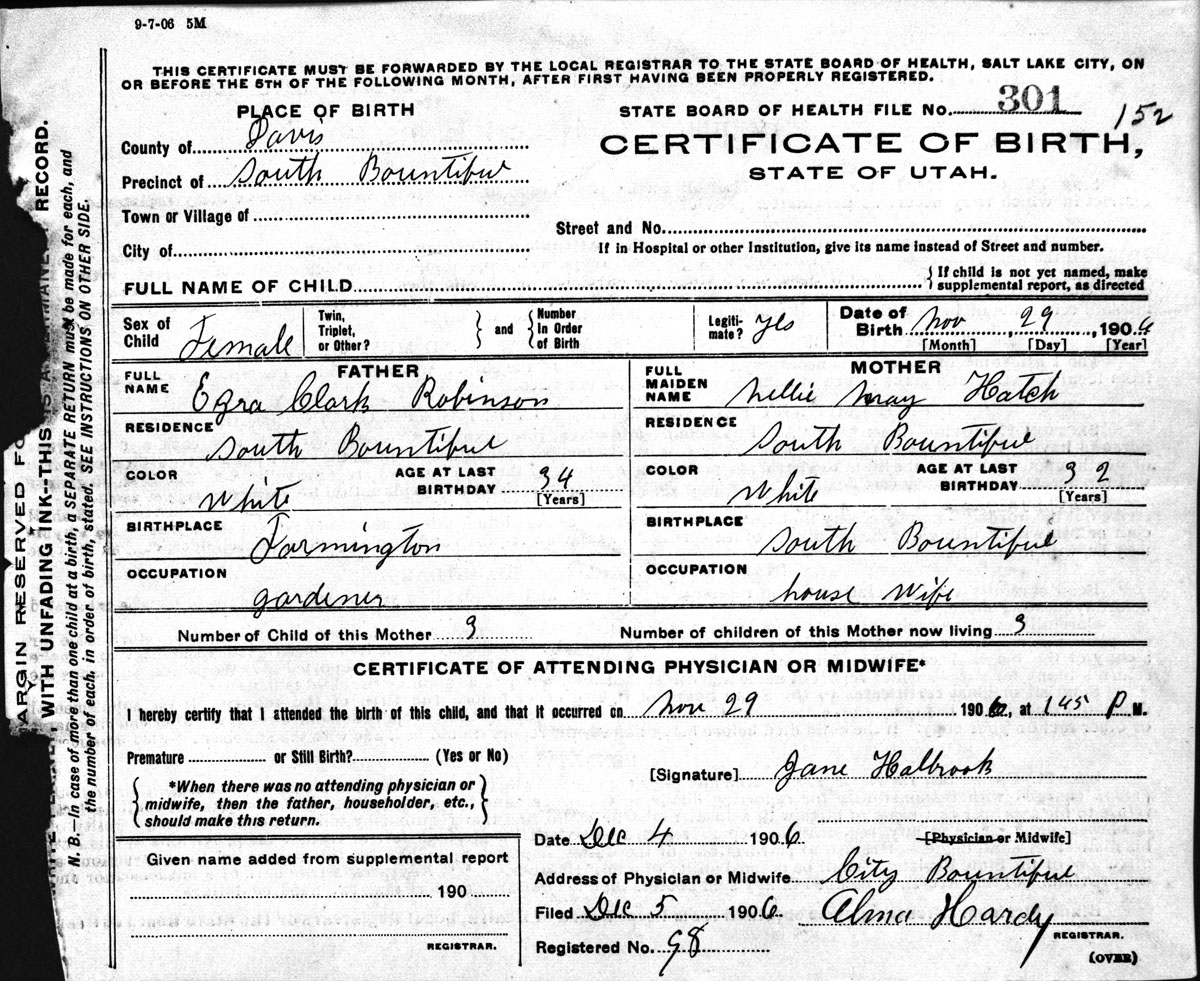 9-7-06 5M
THIS CERTIFICATE MUST BE FORWARDED BY THE LOCAL REGISTRAR TO THE STATE BOARD OF HEALTH, SALT LAKE CITY, ON
OR BEFORE THE 5TH OF THE FOLLOWING MONTH, AFTER FIRST HAVING BEEN PROPERLY REGISTERED.
PLACE OF BIRTH
STATE BOARD OF HEALTH FILE No. 301 152
County of Davis
CERTIFICATE OF BIRTH,
STATE OF UTAH.
Precinct of South Bountiful
Town or Village of
Street and No.
City of
If in Hospital or other Institution, give its name instead of Street and number.
FULL NAME OF CHILD
{ If child is not yet named, make
supplemental report, as directed
Sex of Child Female
Twin, Triplet, or Other? } and { Number In Order of Birth
Legiti-mate? Yes
Date of Birth Nov, 29, 1906
[Month] [Day] [Year]
FATHER
MOTHER
FULL NAME Ezra Clark Robinson
FULL MAIDEN NAME Nellie May Hatch
RESIDENCE South Bountiful
RESIDENCE South Bountiful
COLOR White AGE AT LAST BIRTHDAY 34 [Years]
COLOR White AGE AT LAST BIRTHDAY 32 [Years]
BIRTHPLACE Farmington
BIRTHPLACE South Bountiful
OCCUPATION gardener
OCCUPATION house wife
Number of Child of this Mother 3
Number of children of this Mother now living 3
CERTIFICATE OF ATTENDING PHYSICIAN OR MIDWIFE*
I hereby certify that I attended the birth of this child, and that it occurred on Nov 29 1906, at 145 P M.
Premature or Still Birth? (Yes or No)
[Signature] Jane Holbrook
{ *When there was no attending physician or
midwife, then the father, householder, etc.,
should make this return. }
Date Dec 4 1906
[Physician or Midwife]
Given name added from supplemental report
190
REGISTRAR.
Address of Physician or Midwife City Bountiful
Filed Dec 5 1906 Alma Hardy
REGISTRAR.
Registered No. 98
(OVER)
ARGIN RESERVED FO
WITH UNFADING INK---THIS
RECORD.
N. B.—In case of more than one child at a birth, a SEPARATE RETURN must be made for each, and
the number of each, in order of birth, stated. SEE INSTRUCTIONS ON OTHER SIDE.